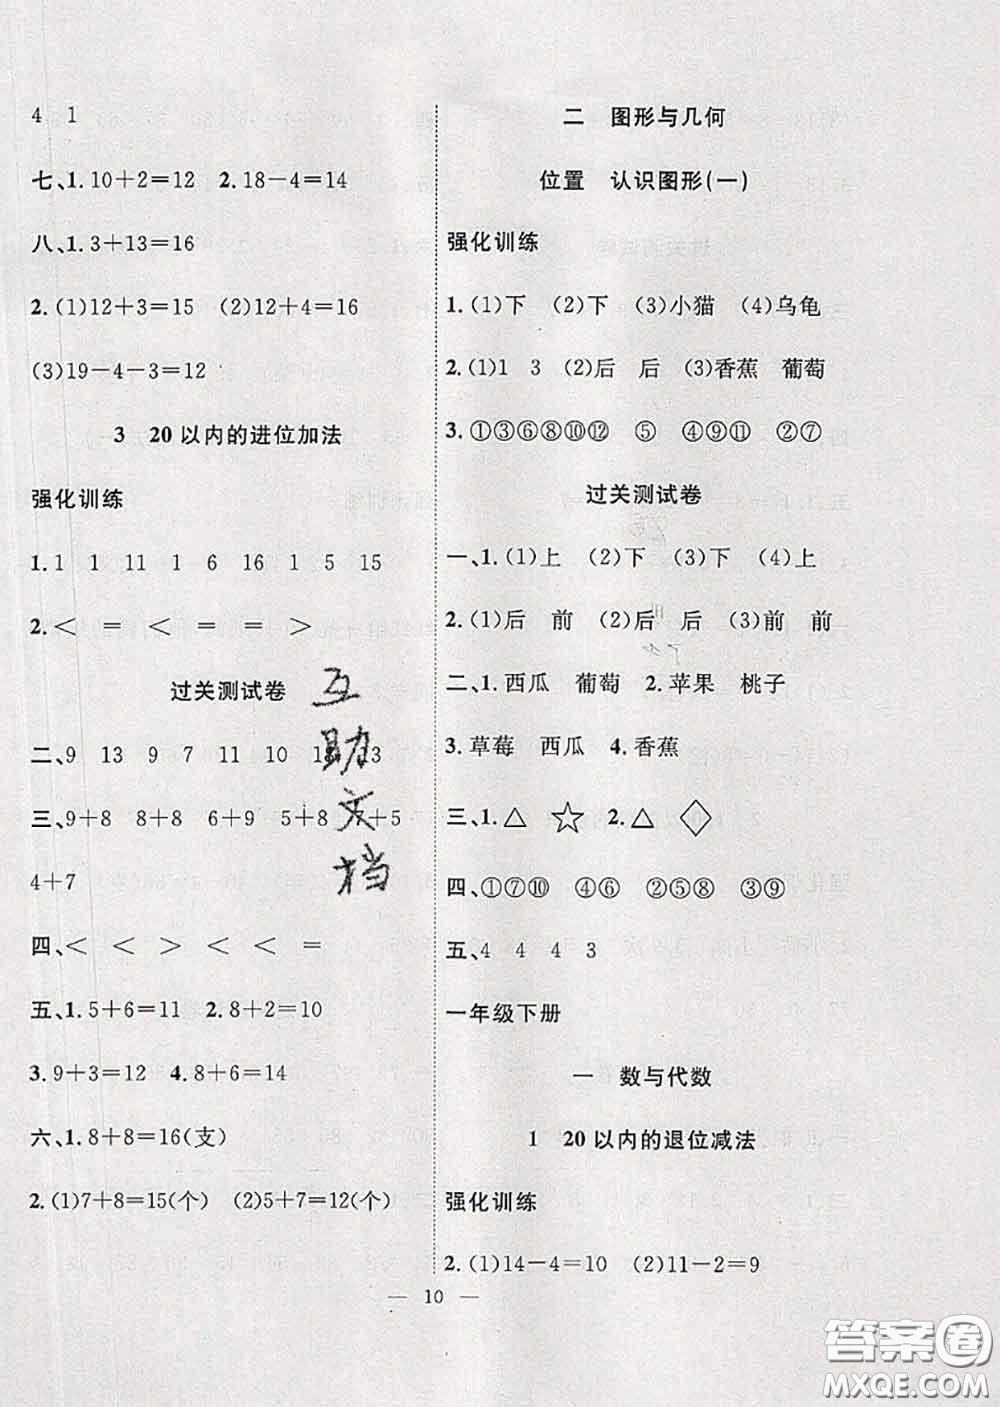 4　1
七、1.10+2=12　2.18-4=14
八、1.3+13=16
2.(1)12+3=15　(2)12+4=16
(3)19-4-3=12
3　20以内的进位加法
强化训练
1.1　1　11　1　6　16　1　5　15
2.<　=　<　=　=　>
过关测试卷
二、9　13　9　7　11　10　13
三、9+8　8+8　6+9　5+8　7+5
4+7
四、<　<　>　<　<　=
五、1.5+6=11　2.8+2=10
3.9+3=12　4.8+6=14
六、1.8+8=16(支)
2.(1)7+8=15(个)　(2)5+7=12(个)
互
助
文
档
二　图形与几何
位置　认识图形(一)
强化训练
1.(1)下　(2)下　(3)小猫　(4)乌龟
2.(1)1　3　(2)后　后　(3)香蕉　葡萄
3.①③⑥⑧⑩⑫　⑤　④⑨⑪　②⑦
过关测试卷
一、1.(1)上　(2)下　(3)下　(4)上
2.(1)后　前　(2)后　后　(3)前　前
二、1.西瓜　葡萄　2.苹果　桃子
3.草莓　西瓜　4.香蕉
三、1.△　☆　2.△　◇
四、①⑦⑩　④⑥　②⑤⑧　③⑨
五、4　4　4　3
一年级下册
一　数与代数
1　20以内的退位减法
强化训练
2.(1)14-4=10　(2)11-2=9
— 10 —
答案圈
MXQE.COM